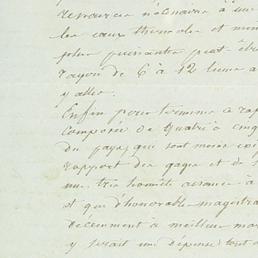 ressources nécessaires à une
les eaux thermales et min
plus puissante peut-êtr
rayon de 6 à 12 lieues a
y aller.
Enfin pour terminer ce rap
composée de quatre à cinq
du pays, qui sont moins coû
rapport des gages et de l
une très humble avance à
et que d'honorable magistra
décemment à meilleur ma
y serait une dépense tout a